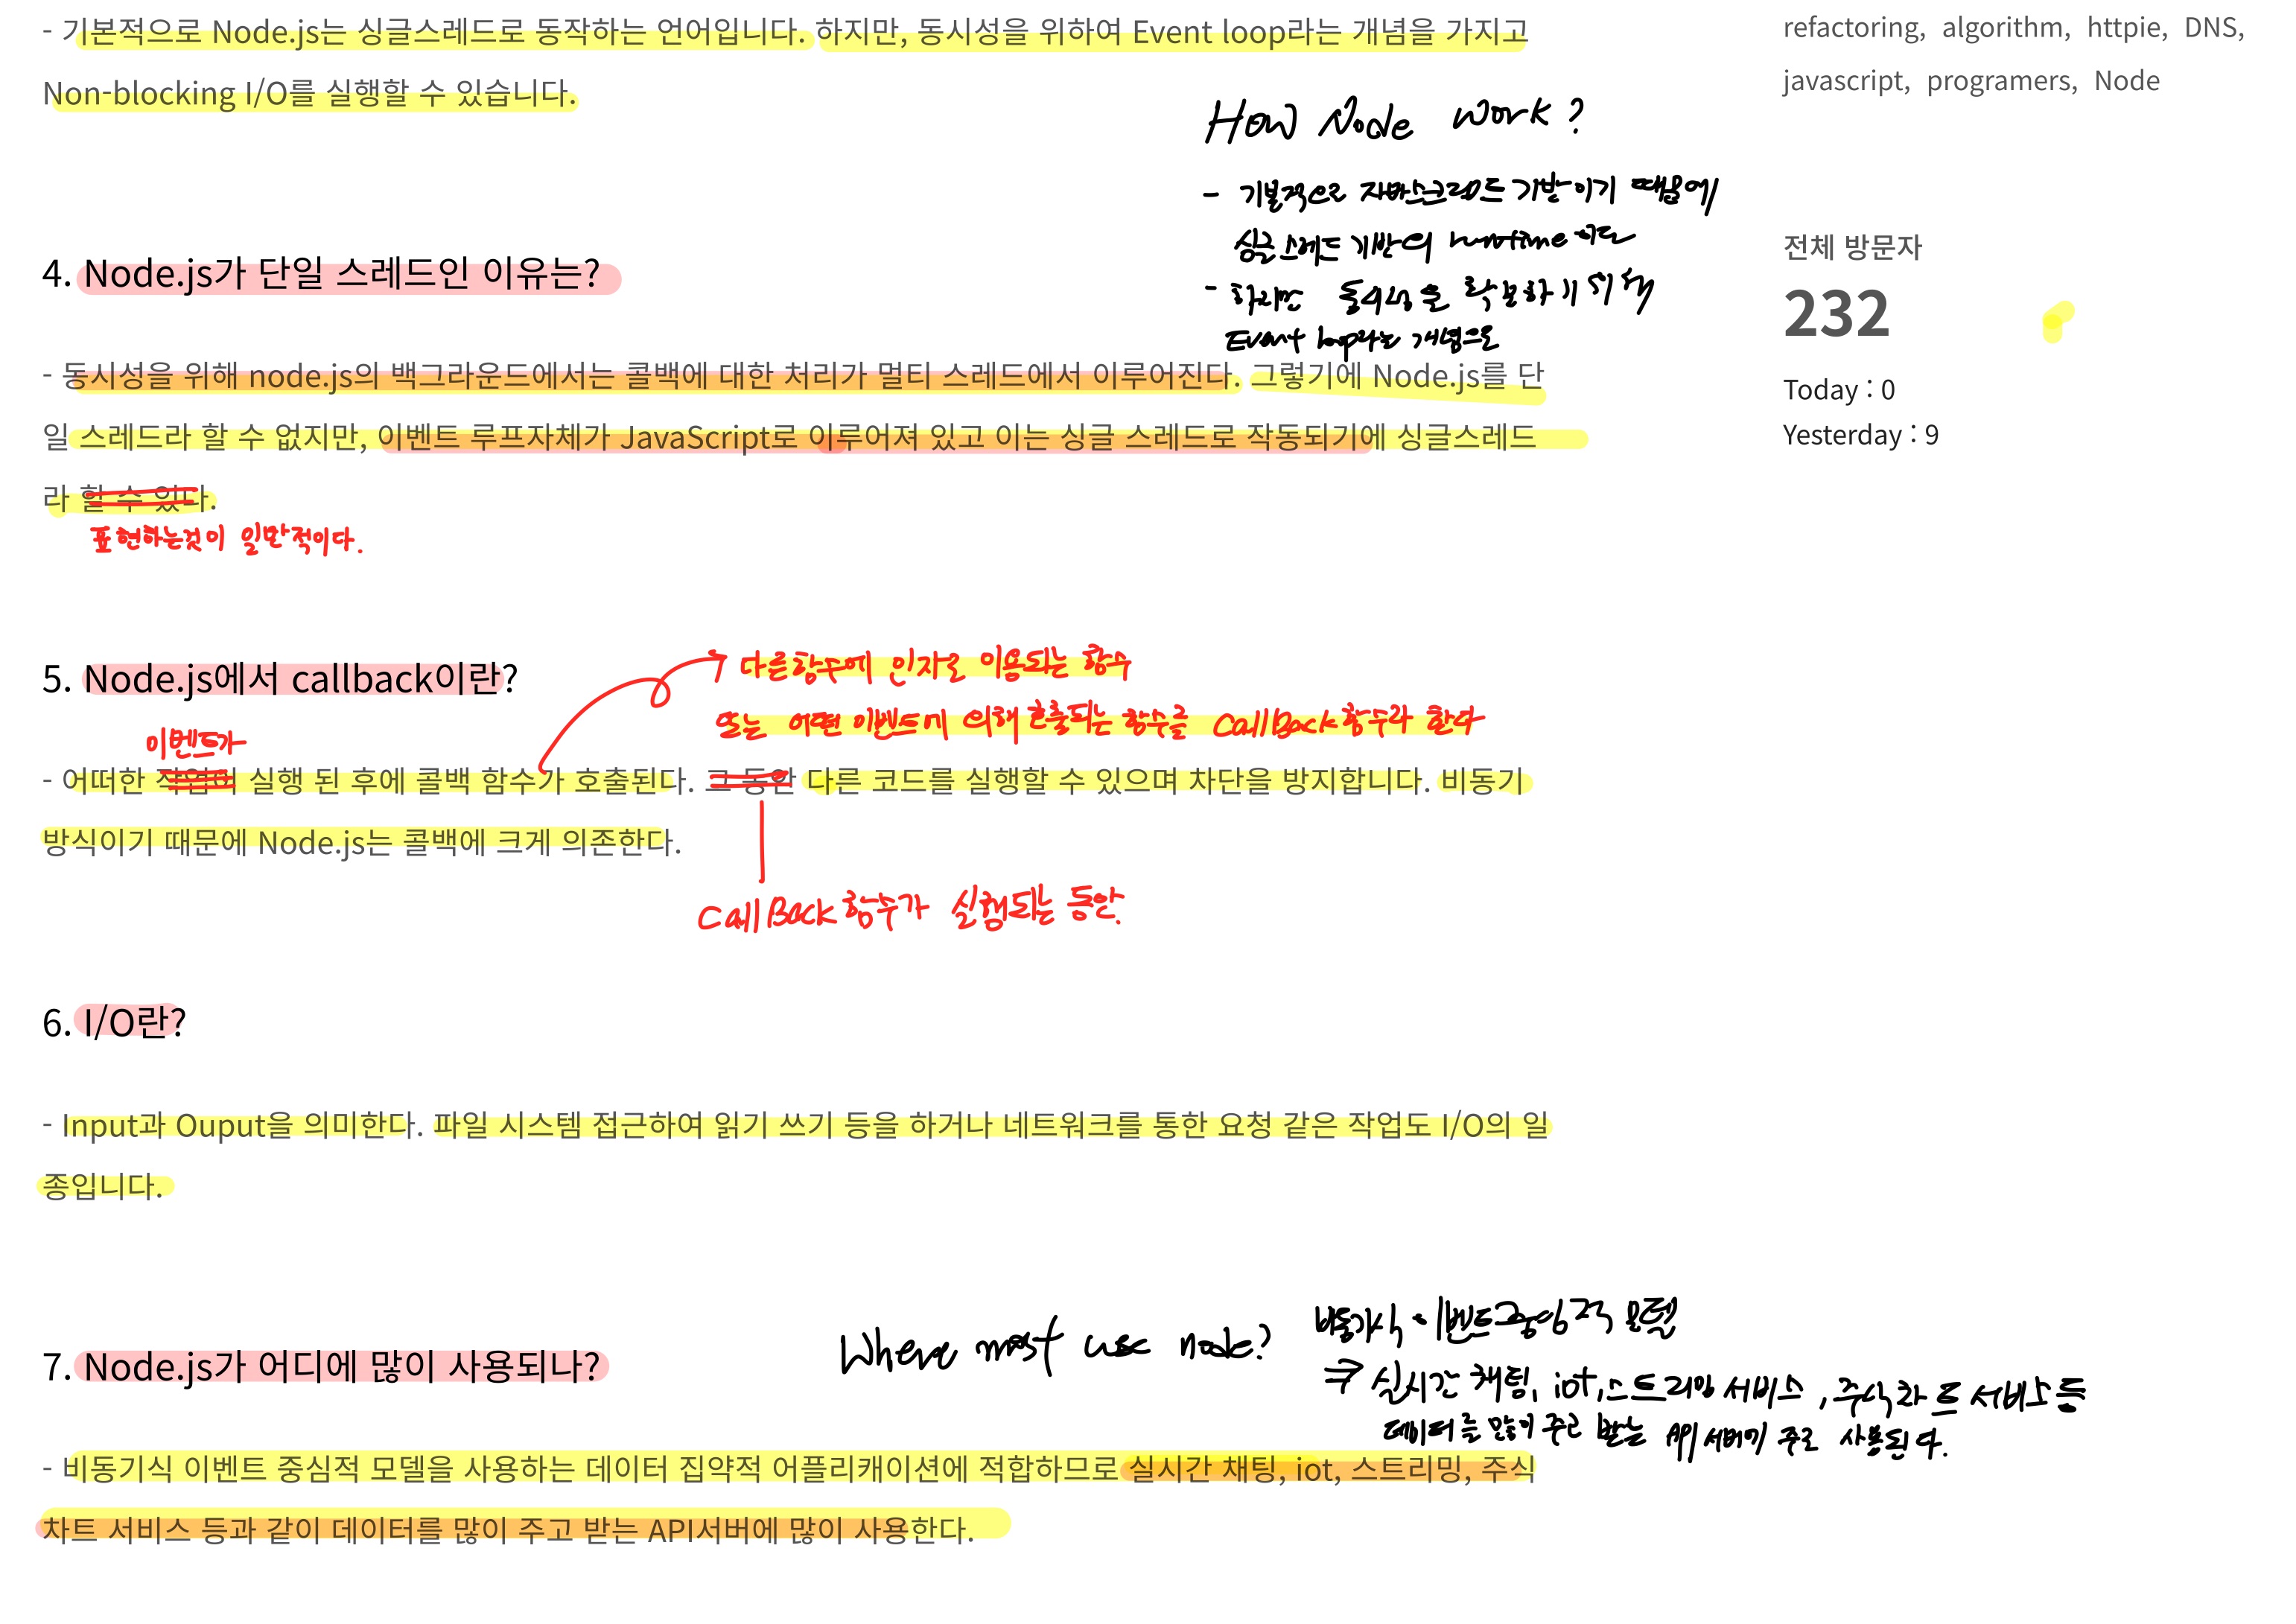 - 기본적으로 Node.js는 싱글스레드로 동작하는 언어입니다. 하지만, 동시성을 위하여 Event loop라는 개념을 가지고
Non-blocking I/O를 실행할 수 있습니다.
How Node work?
- 기본적으로 자바스크립트 기반이기 때문에
싱글 스레드 기반의 runtime이다
- 하지만 동시성을 확보하기 위해
Event loop라는 개념으로
4. Node.js가 단일 스레드인 이유는?
- 동시성을 위해 node.js의 백그라운드에서는 콜백에 대한 처리가 멀티 스레드에서 이루어진다. 그렇기에 Node.js를 단
일 스레드라 할 수 없지만, 이벤트 루프자체가 JavaScript로 이루어져 있고 이는 싱글 스레드로 작동되기에 싱글스레드
라 할 수 있다.
표현하는것이 일반적이다.
5. Node.js에서 callback이란?
다른함수에 인자로 이용되는 함수
또는 어떤 이벤트에 의해 호출되는 함수를 CallBack함수라 한다
이벤트가
- 어떠한 작업이 실행 된 후에 콜백 함수가 호출된다. 그 동안 다른 코드를 실행할 수 있으며 차단을 방지합니다. 비동기
방식이기 때문에 Node.js는 콜백에 크게 의존한다.
CallBack함수가 실행되는 동안.
6. I/O란?
- Input과 Ouput을 의미한다. 파일 시스템 접근하여 읽기 쓰기 등을 하거나 네트워크를 통한 요청 같은 작업도 I/O의 일
종입니다.
7. Node.js가 어디에 많이 사용되나?
Where most use node?
비동기식 이벤트중심적 모델
⇒ 실시간 채팅, iot, 스트리밍 서비스, 주식차트 서비스 등
데이터를 많이 주고 받는 API 서버에 주로 사용된다.
- 비동기식 이벤트 중심적 모델을 사용하는 데이터 집약적 어플리캐이션에 적합하므로 실시간 채팅, iot, 스트리밍, 주식
차트 서비스 등과 같이 데이터를 많이 주고 받는 API서버에 많이 사용한다.
refactoring, algorithm, httpie, DNS,
javascript, programers, Node
전체 방문자
232
Today : 0
Yesterday : 9